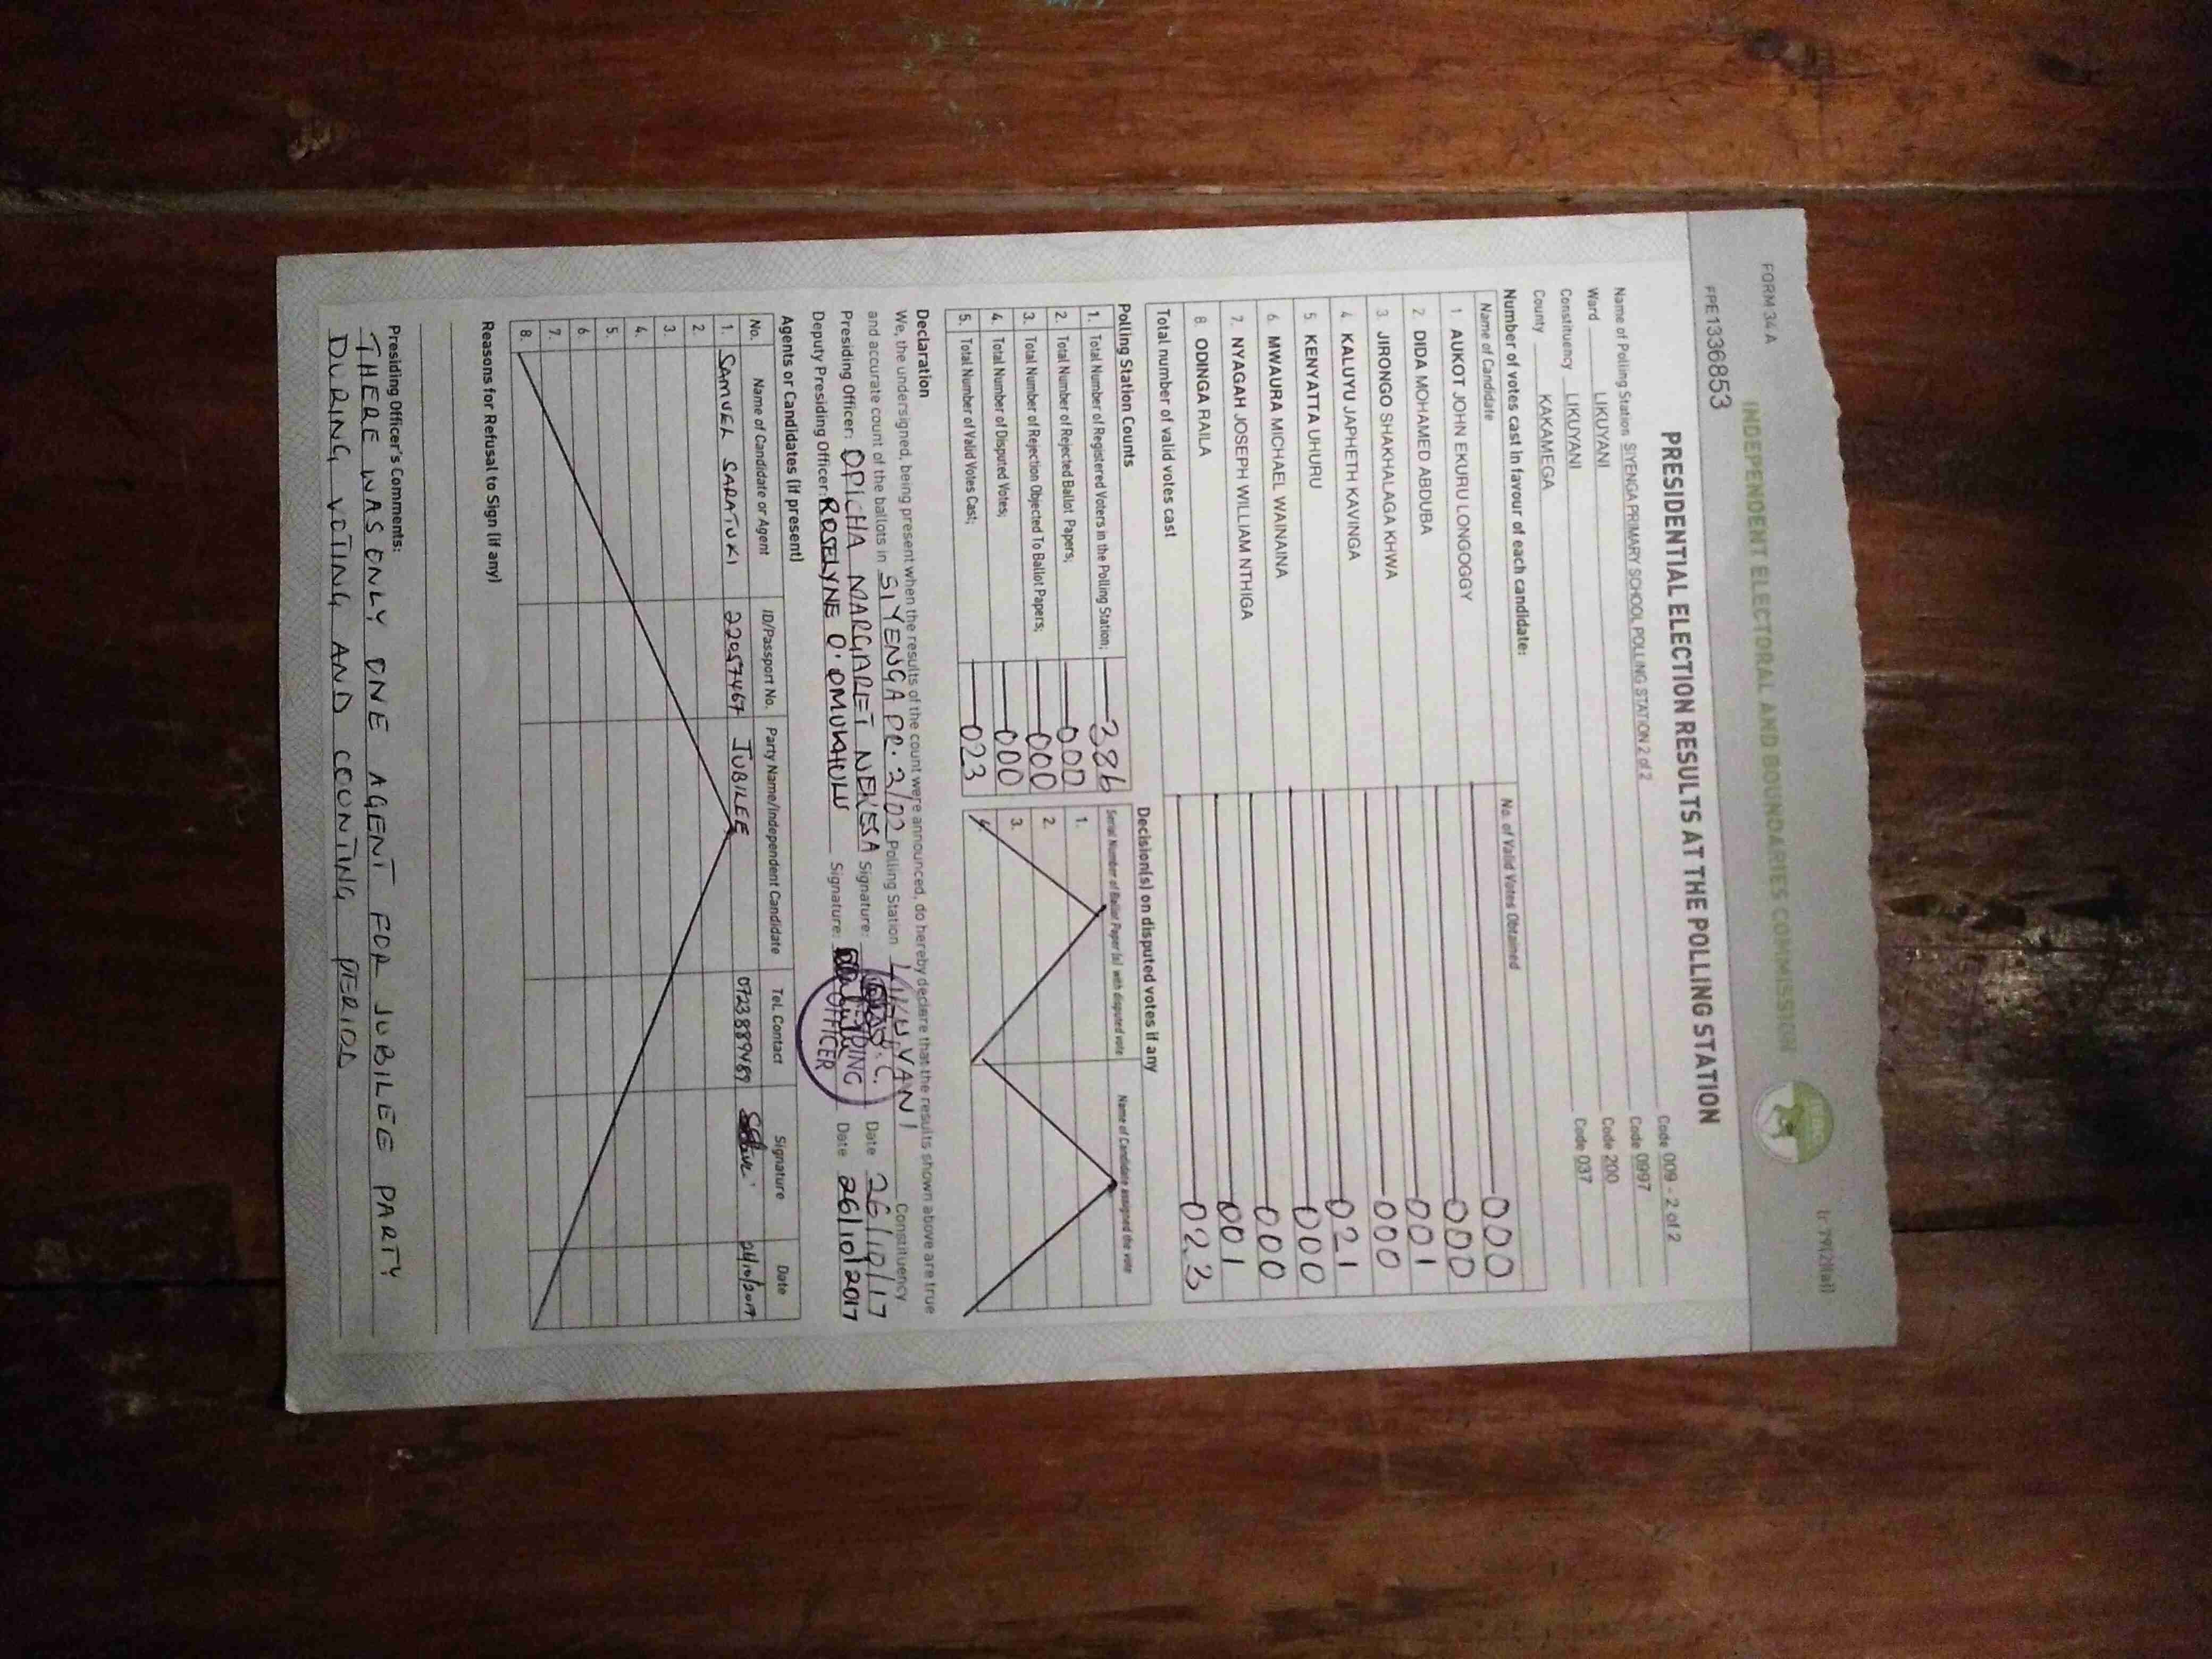 FORM 34 A
(r 79(2)(a))
INDEPENDENT ELECTORAL AND BOUNDARIES COMMISSION
FPE1336853
PRESIDENTIAL ELECTION RESULTS AT THE POLLING STATION
Name of Polling Station SIYENGA PRIMARY SCHOOL POLLING STATION 2 of 2 Code 009 - 2 of 2
Ward LIKUYANI Code 0997
Constituency LIKUYANI Code 200
County KAKAMEGA Code 037
Number of votes cast in favour of each candidate:
Name of Candidate No. of Valid Votes Obtained
1. AUKOT JOHN EKURU LONGOGGY 000
2. DIDA MOHAMED ABDUBA 000
3. JIRONGO SHAKHALAGA KHWA 001
4. KALUYU JAPHETH KAVINGA 000
5. KENYATTA UHURU 021
6. MWAURA MICHAEL WAINAINA 000
7. NYAGAH JOSEPH WILLIAM NTHIGA 000
8. ODINGA RAILA 001
Total number of valid votes cast 023
Polling Station Counts
1. Total Number of Registered Voters in the Polling Station; 386
2. Total Number of Rejected Ballot Papers; 000
3. Total Number of Rejection Objected To Ballot Papers; 000
4. Total Number of Disputed Votes; 000
5. Total Number of Valid Votes Cast; 023
Decision(s) on disputed votes if any
Serial Number of Ballot Paper (s) with disputed vote Name of Candidate assigned the vote
1.
2.
3.
4
Declaration
We, the undersigned, being present when the results of the count were announced, do hereby declare that the results shown above are true
and accurate count of the ballots in SIYENGA PR. 2/02 Polling Station LIKUYANI Constituency
Presiding Officer: OPICHA MARGARET NEKESA Signature: Date 26/10/17
Deputy Presiding Officer: ROSELYNE O. OMUKHULU Signature: Date 26/10/2017
OFFICER
Agents or Candidates (if present)
No. Name of Candidate or Agent ID/Passport No. Party Name/Independent Candidate Tel. Contact Signature Date
1. SAMUEL SARATUKI 22057467 JUBILEE 0723889489 26/10/2017
2.
3.
4.
5.
6.
7.
8.
Reasons for Refusal to Sign (if any)
Presiding Officer's Comments:
THERE WAS ONLY ONE AGENT FOR JUBILEE PARTY
DURING VOTING AND COUNTING PERIOD